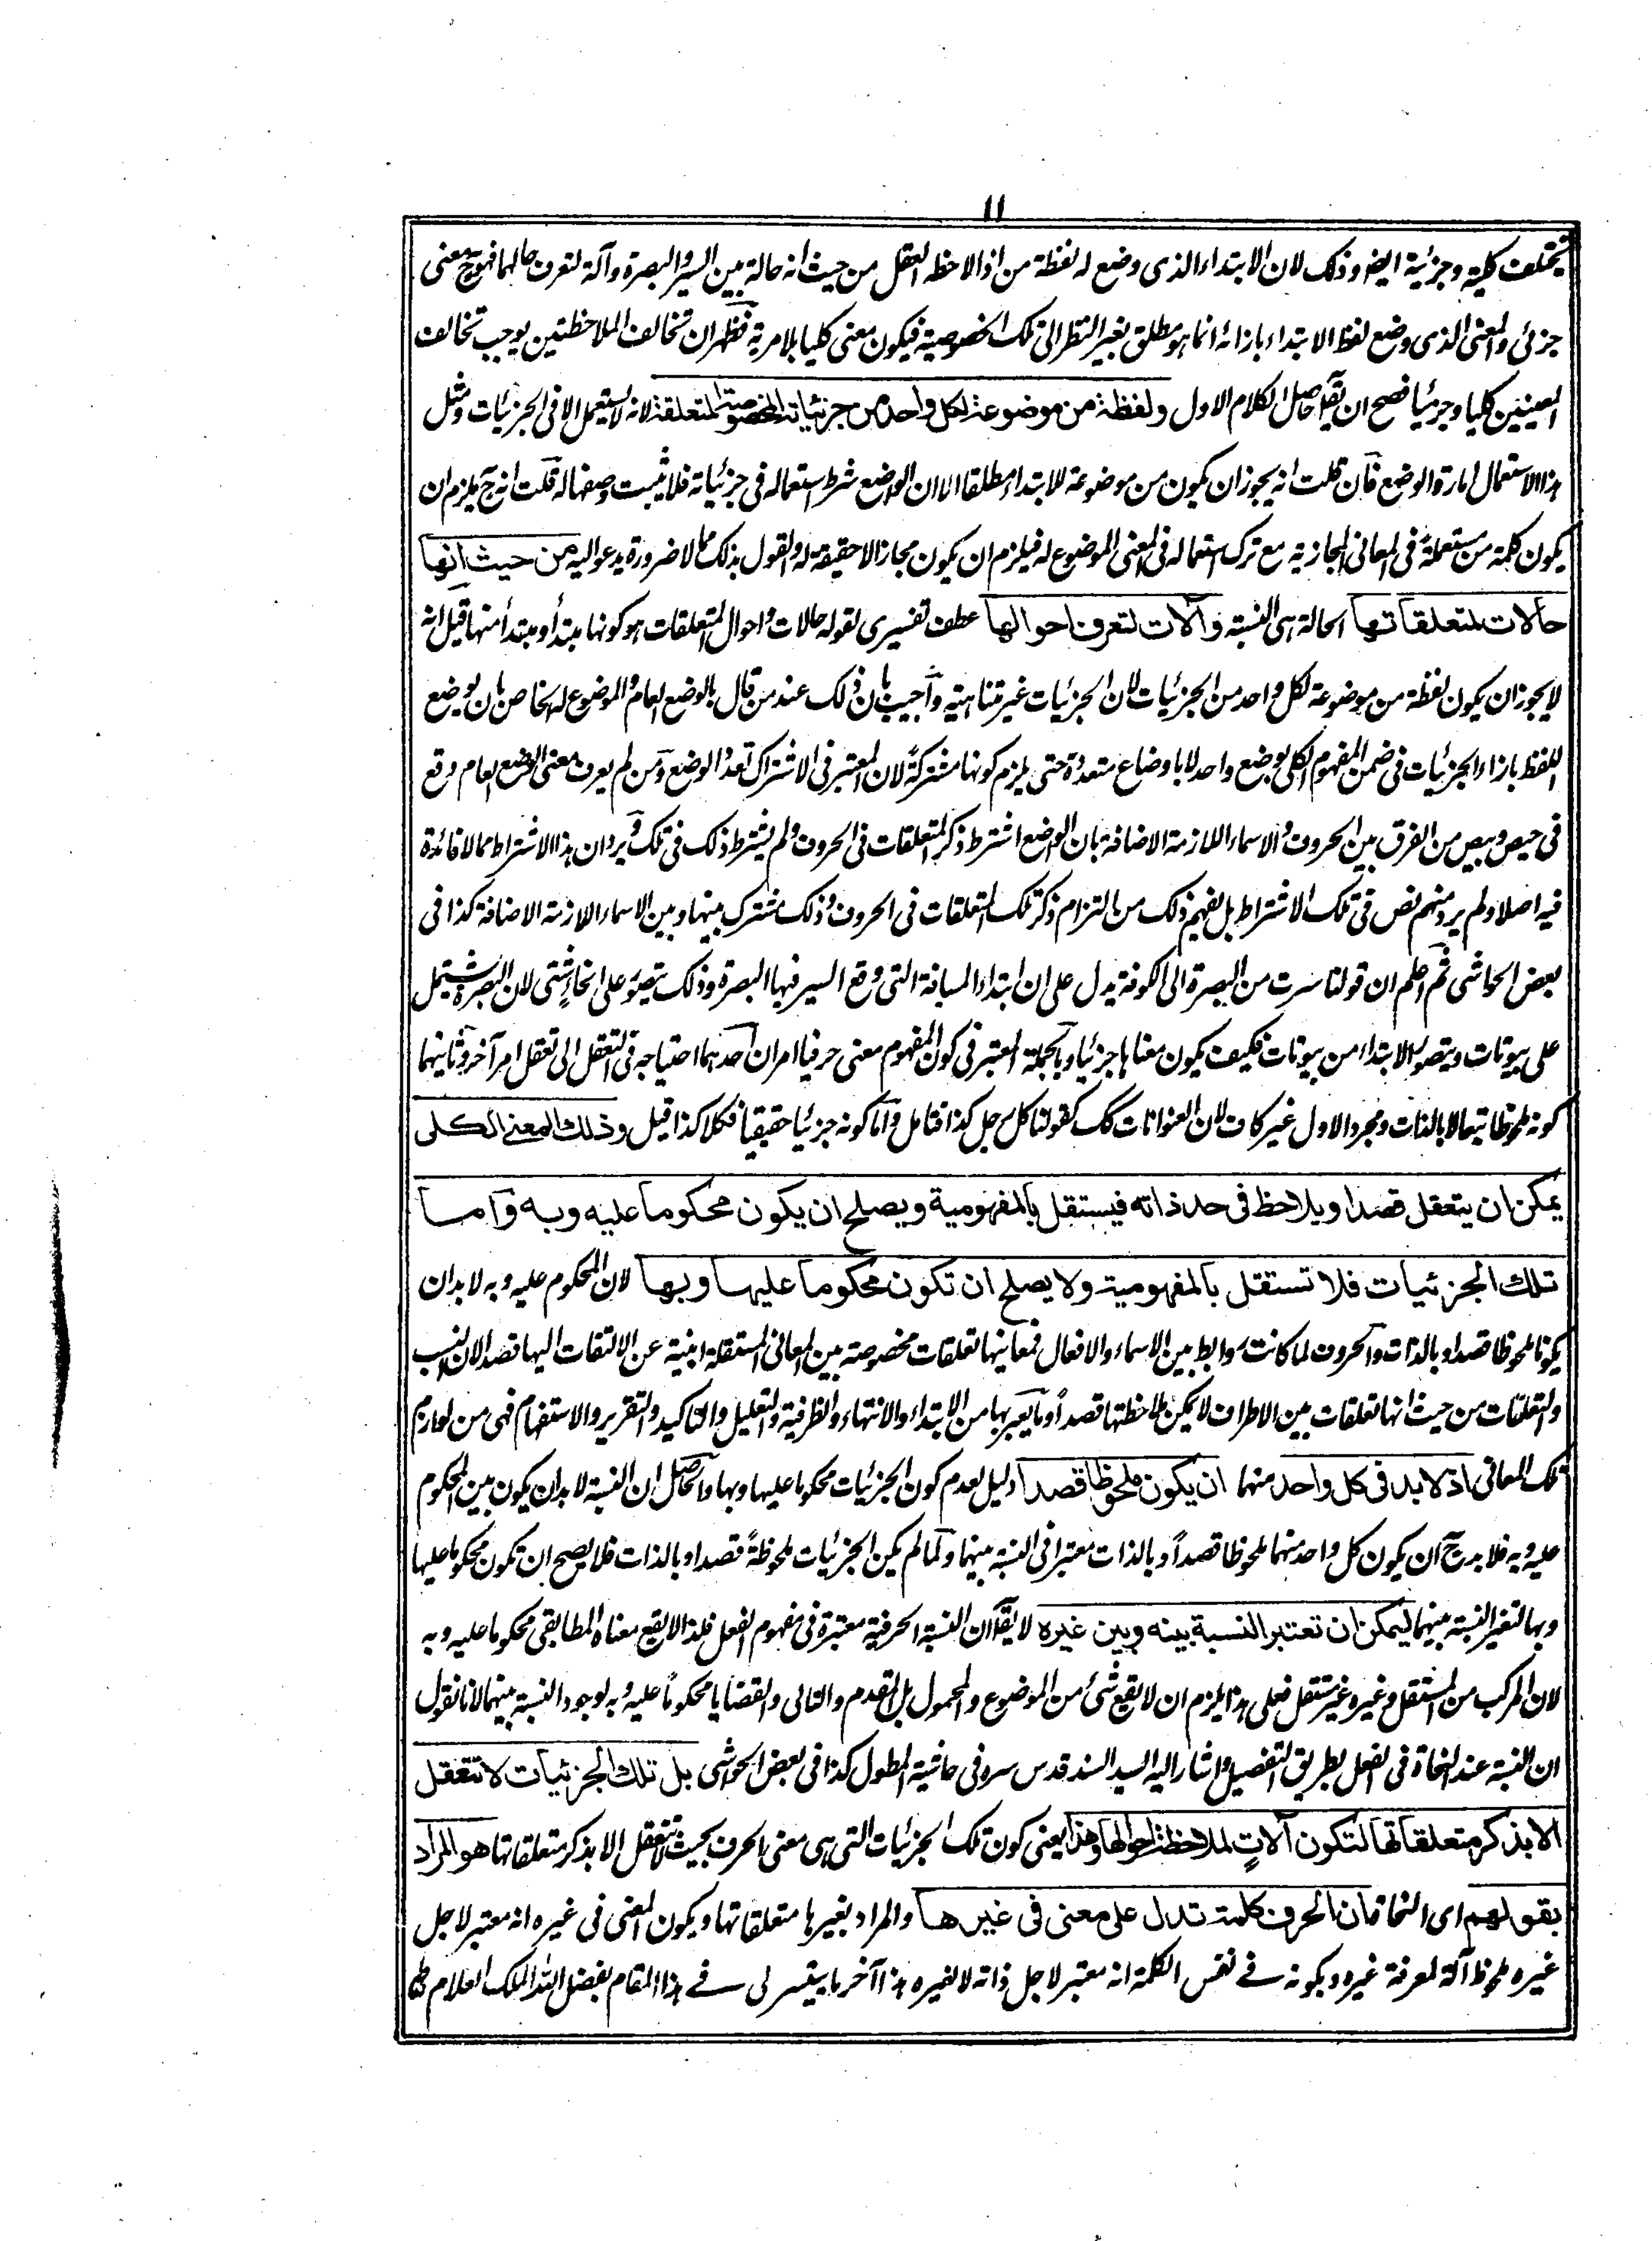 ١١
يختلف كلية وجزئية ايضا وذلك لان الابتداء الذى وضع له لفظة من اذا لاحظه العقل من حيث انه حالة بين السير والبصرة وآلة لتعرف حالهما فهو ح معنى
جزئى والمعنى الذى وضع لفظ الابتداء بازائه انما هو مطلق بغير النظر الى تلك الخصوصية فيكون معنى كليا بلا مرية فظهر ان تخالف الملاحظتين يوجب تخالف
المعنيين كليا وجزئيا فصح ان يقال حاصل الكلام الاول ولفظة من موضوعة لكل واحد من جزئياته المخصوصة المتعلقة لانه لا يستعمل الا فى الجزئيات ومثل
هذا الاستعمال امارة الوضع فان قلت انه يجوز ان يكون من موضوعة للابتداء مطلقا الا ان الواضع شرط استعماله فى جزئياته فلا يثبت وضعها له قلت انه ح يلزم ان
يكون كلمة من مستعملة فى المعانى المجازية مع ترك استعماله فى المعنى الموضوع له فيلزم ان يكون مجازا لا حقيقة له والقول بذلك مما لا ضرورة يدعو اليه من حيث انها
حالات لمتعلقاتها الحالة هى النسبة وآلات لتعرف احوالها عطف تفسيرى لقوله حالات واحوال المتعلقات هو كونها مبتدأ ومبتدأ منها قيل انه
لا يجوز ان يكون لفظة من موضوعة لكل واحد من الجزئيات لان الجزئيات غير متناهية واجيب بان ذلك عند من قال بالوضع العام والموضوع له الخاص بان يوضع
اللفظ بازاء الجزئيات فى ضمن المفهوم الكلى بوضع واحد لا باوضاع متعددة حتى يلزم كونها مشتركة لان المعتبر فى الاشتراك تعدد الوضع ومن لم يعرف معنى الوضع العام وقع
فى حيص وبيص من الفرق بين الحروف والاسماء اللازمة الاضافة بان الواضع اشترط ذكر المتعلقات فى الحروف ولم يشترط ذلك فى تلك ويرد ان هذا الاشتراط مما لا فائدة
فيه اصلا ولم يرد منهم نص فى تلك الاشتراط بل يفهم ذلك من التزام ذكر تلك المتعلقات فى الحروف وذلك مشترك بينها وبين الاسماء اللازمة الاضافة كذا فى
بعض الحواشى ثم اعلم ان قولنا سرت من البصرة الى الكوفة يدل على ان ابتداء المسافة التى وقع السير فيها البصرة وذلك يتصور على انحاء شتى لان البصرة يشتمل
على بيوتات ويتصور الابتداء من بيوتات فكيف يكون معناها جزئيا وبالجملة المعتبر فى كون المفهوم معنى حرفيا امران احدهما احتياجه فى التعقل الى تعقل امر آخر وثانيهما
كونه ملحوظا تبعا لا بالذات ومجرد الاول غير كاف لان العنوانات كك كقولنا كل رجل كذا فتامل واما كونه جزئيا حقيقيا فكلا كذا قيل وذلك المعنى الكلى
يمكن ان يتعقل قصدا ويلاحظ فى حد ذاته فيستقل بالمفهومية ويصلح ان يكون محكوما عليه وبه واما
تلك الجزئيات فلا تستقل بالمفهومية ولا يصلح ان تكون محكوما عليها وبها لان المحكوم عليه وبه لا بد ان
يكونا ملحوظا قصدا وبالذات والحروف لما كانت روابط بين الاسماء والافعال فمعانيها تعلقات مخصوصة بين المعانى المستقلة ابنية عن الالتفات اليها قصدا لان النسب
والتعلقات من حيث انها تعلقات بين الاطراف لا يمكن ملاحظتها قصداً وما يعبر بها من الابتداء والانتهاء والظرفية والتعليل والتاكيد والتقرير والاستفهام فهى من لوازم
تلك المعانى اذ لا بد فى كل واحد منهما ان يكون ملحوظا قصدا دليل لعدم كون الجزئيات محكوما عليها وبها والحاصل ان النسبة لا بد ان يكون بين المحكوم
عليه وبه فلا بد ح ان يكون كل واحد منهما ملحوظا قصداً وبالذات معتبرا فى النسبة بينهما ولما لم يكن الجزئيات ملحوظةً قصدا وبالذات فلا يصح ان تكون محكوما عليها
وبها لتغير النسبة بينهما ليمكن ان تعتبر النسبة بينه وبين غيره لا يقال ان النسبة الحرفية معتبرة فى مفهوم الفعل فلذا لا يقع معناه المطابقى محكوما عليه وبه
لان المركب من المستقل وغيره غير مستقل فعلى هذا يلزم ان لا يقع شئ من الموضوع والمحمول بل المقدم والتالى والقضايا محكوماً عليه وبه لوجود النسبة بينهما لانا نقول
ان النسبة عند النحاة فى الفعل بطريق التفصيل واشار اليه السيد السند قدس سره فى حاشية المطول كذا فى بعض الحواشى بل تلك الجزئيات لا تتعقل
الا بذكر متعلقاتها لتكون آلاتٍ لملاحظة احوالها وهذا يعنى كون تلك الجزئيات التى هى معنى الحرف بحيث لا تتعقل الا بذكر متعلقاتها هو المراد
بقولهم اى النحاة ان الحرف كلمة تدل على معنى فى غيرها والمراد بغيرها متعلقاتها ويكون المعنى فى غيره انه معتبر لاجل
غيره ملحوظ آلة لمعرفة غيره وبكونه فے نفس الكلمة انه معتبر لاجل ذاته لا لغيره هذا آخر ما يتيسر لى فے هذا المقام بفضل الله الملك العلام